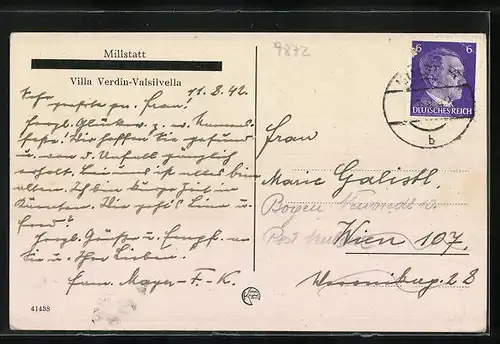 Millstatt
Villa Verdin-Valsilvella
9872
11.8.42.
Sehr geehrte gn. Frau!
Herzl. Glückw. z. w. Namens-
feste! Wir hoffen Sie gesund
u. von d. Unfall gänzlich
erholt. Bei uns ist alles beim
alten. Ich bin kurze Zeit in
Kärnten. Wie geht's
Herzl. Grüße u. Empf. an
Sie u. Ihre Lieben.
Fam. Mayer-F.-K.
41438
6 6
DEUTSCHES REICH
b
Frau
Marie Galistl.
Bogen
Post
Wien 107.
28